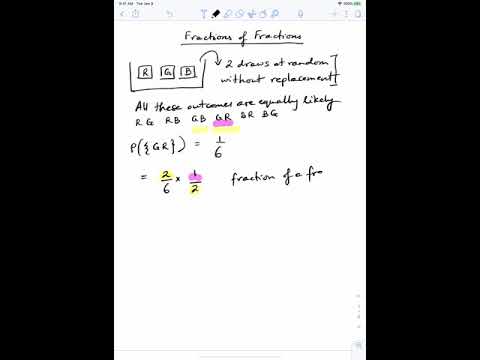 9:41 AM Tue Jan 9
Fractions of Fractions
R G B
2 draws at random
without replacement
All these outcomes are equally likely
RG RB GB GR BR BG
P({GR}) = 1/6
= 2/6 × 1/2 fraction of a fra